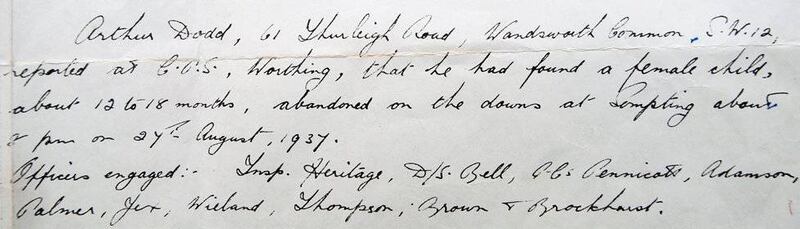 Arthur Dodd, 61 Thurleigh Road, Wandsworth Common, S.W.12,
reported at C.O.S., Worthing, that he had found a female child,
about 12 to 18 months, abandoned on the downs at Sompting about
pm on 27th August, 1937.
Officers engaged:- Insp. Heritage, D/S. Bell, P.Cs Pennicott, Adamson,
Palmer, Jex, Wieland, Thompson, Brown & Brockhurst.